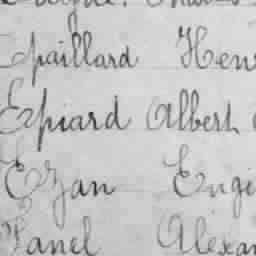 Epaillard Henr
Epiard Albert
Ezan Eugè
Fanel Alexan